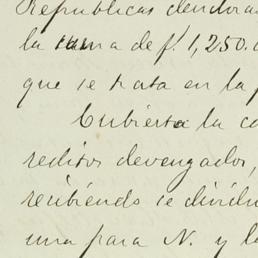 Republicas deudoras
la suma de f. 1,250.
que se trata en la p
Cubierta la co
reditos devengados,
recibiendo se dividi
una para N. y l